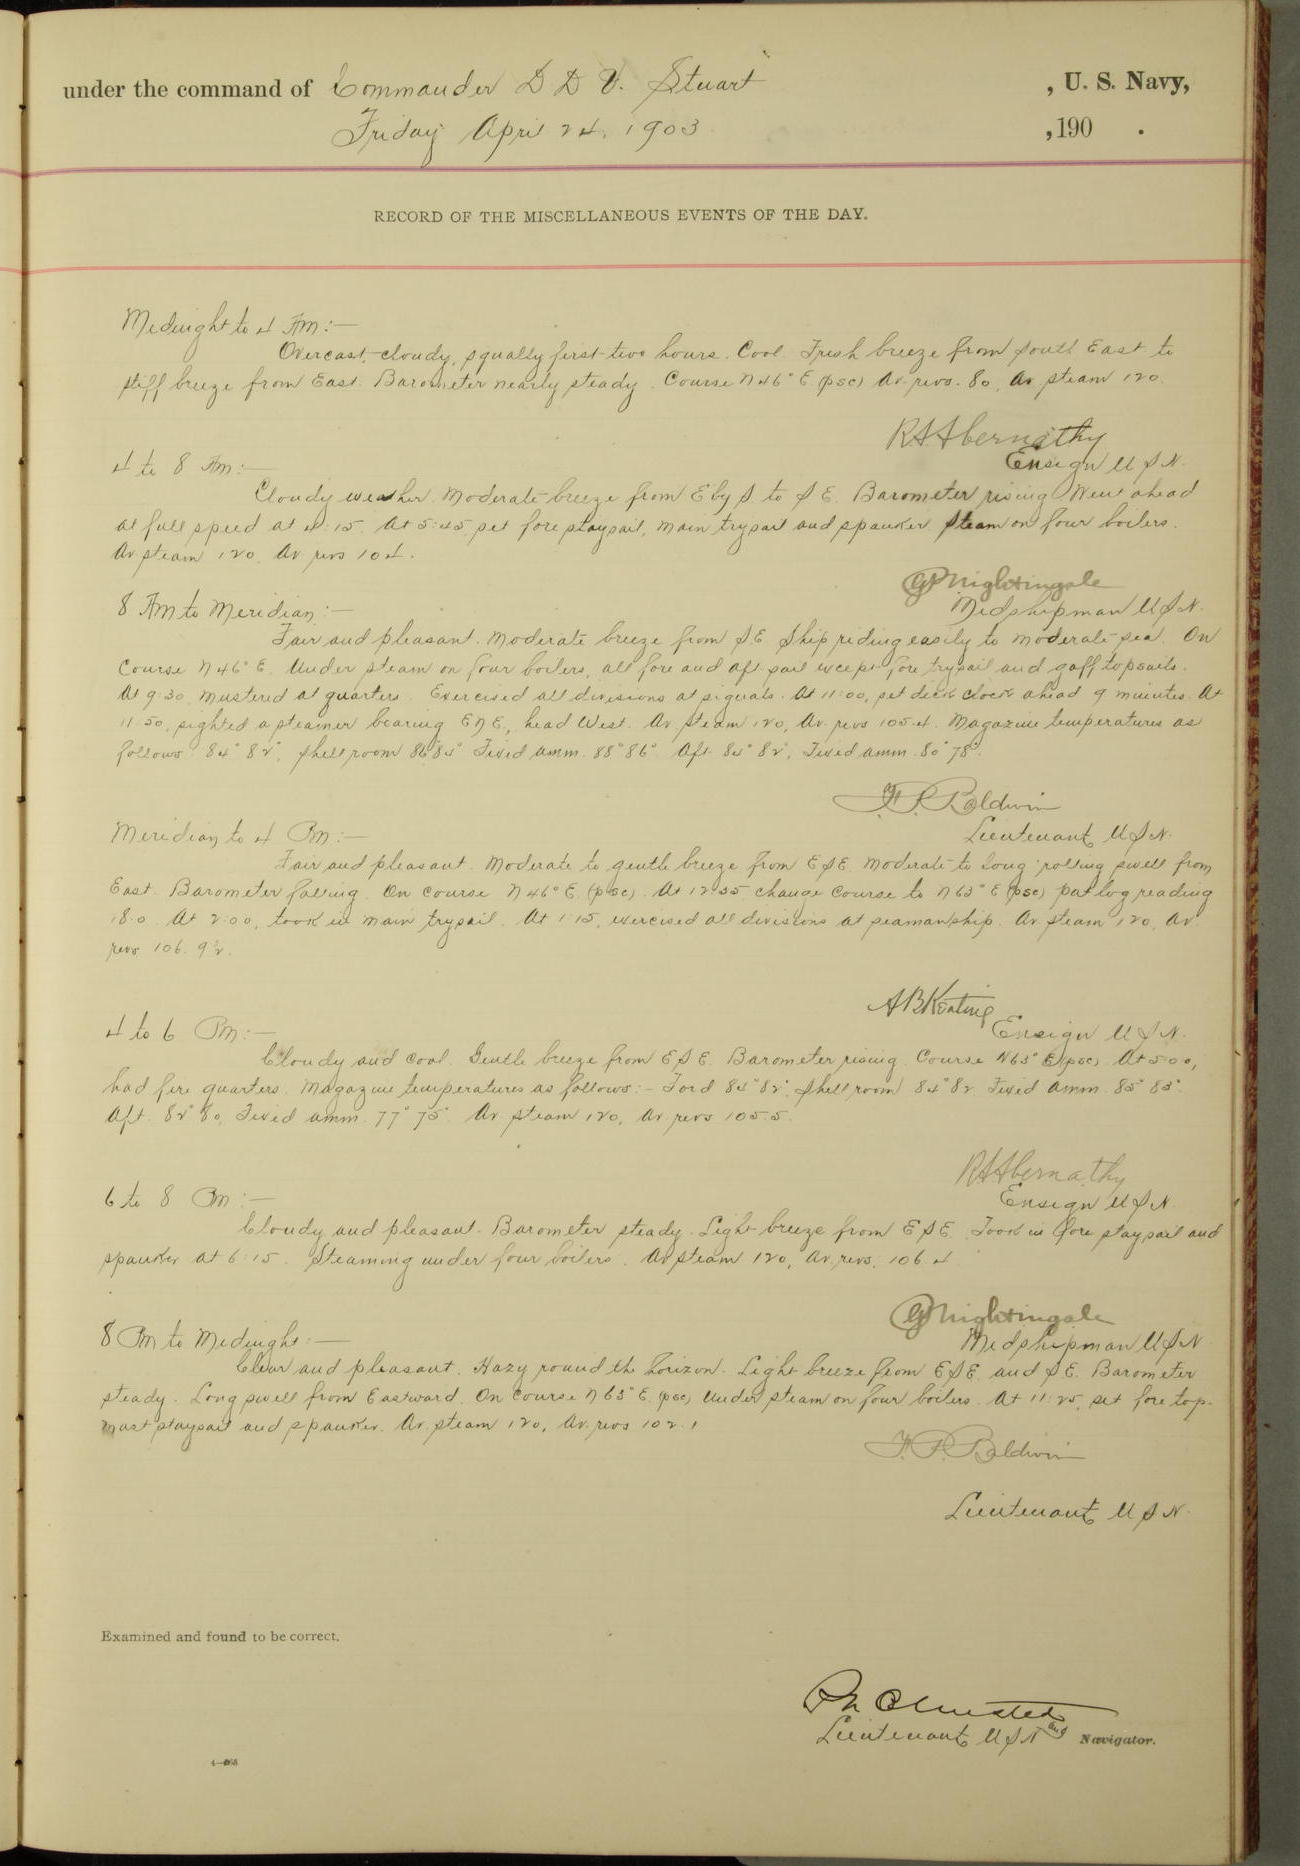 under the command of Commander D D V. Stuart , U. S. Navy,
Friday April 24, 1903 , 190 .
RECORD OF THE MISCELLANEOUS EVENTS OF THE DAY.
Midnight to 4 AM:—
Overcast, cloudy, squally first two hours. Cool. Fresh breeze from South East to
stiff breeze from East. Barometer nearly steady. Course N 46° E. (psc) Av. revs. 80, Av steam 120.
R.A. Abernathy
Ensign U S N.
4 to 8 AM:—
Cloudy weather. Moderate breeze from E by S. to S E. Barometer rising. Went ahead
at full speed at 4:15. At 5:45, set fore staysail, main trysail and spanker. Steam on four boilers.
Av steam 120, Av revs 104.
Nightingale
Midshipman U S N.
8 AM to Meridian:—
Fair and pleasant. Moderate breeze from S.E. Ship riding easily to moderate sea. On
course N 46° E. Under steam on four boilers, all fore and aft sail except fore trysail and gaff topsails.
At 9:30, mustered at quarters. Exercised all divisions at signals. At 11:00, set deck clock ahead 9 minutes. At
11:50, sighted a steamer bearing E N E, head West. Av steam 120, Av. revs 105.4. Magazine temperatures as
follows 84° 82°, shell room 86° 84° Fixed amm. 88° 86°. Aft. 84° 82°, Fixed amm. 80° 78°.
F. P. Baldwin
Lieutenant U S N.
Meridian to 4 PM:—
Fair and pleasant. Moderate to gentle breeze from E S E. Moderate to long rolling swell from
East. Barometer falling. On course N 46° E. (psc). At 12:35 change course to N 63° E (psc) pat log reading
18.0. At 2:00, took in main trysail. At 1:15, exercised all divisions at seamanship. Av. steam 120, Av.
revs 106.92.
A B Keating
Ensign U S N.
4 to 6 PM:—
Cloudy and cool. Gentle breeze from E S E. Barometer rising. Course N 63° E (psc). At 5:00,
had fire quarters. Magazine temperatures as follows:- Ford 84° 82°, shell room 84° 82 Fixed amm. 85° 83°.
Aft. 82° 80, Fixed amm. 77° 75°. Av. steam 120, Av. revs 105.5.
R A Abernathy
Ensign U S N.
6 to 8 PM:—
Cloudy and pleasant. Barometer steady. Light breeze from E S E. Took in fore staysail and
spanker at 6:15. Steaming under four boilers. Av steam 120, Av. revs. 106.4
Nightingale
Midshipman U S N
8 PM to Midnight:—
Clear and pleasant. Hazy round the horizon. Light breeze from E S E. and S E. Barometer
steady. Long swell from Eastward. On course N 63° E. (psc) Under steam on four boilers. At 11:25, set fore top-
mast staysail and spanker. Av. steam 120, Av. revs 102.1
F. P. Baldwin
Lieutenant U S N.
Examined and found to be correct.
Olmsted
Lieutenant U S N and Navigator.